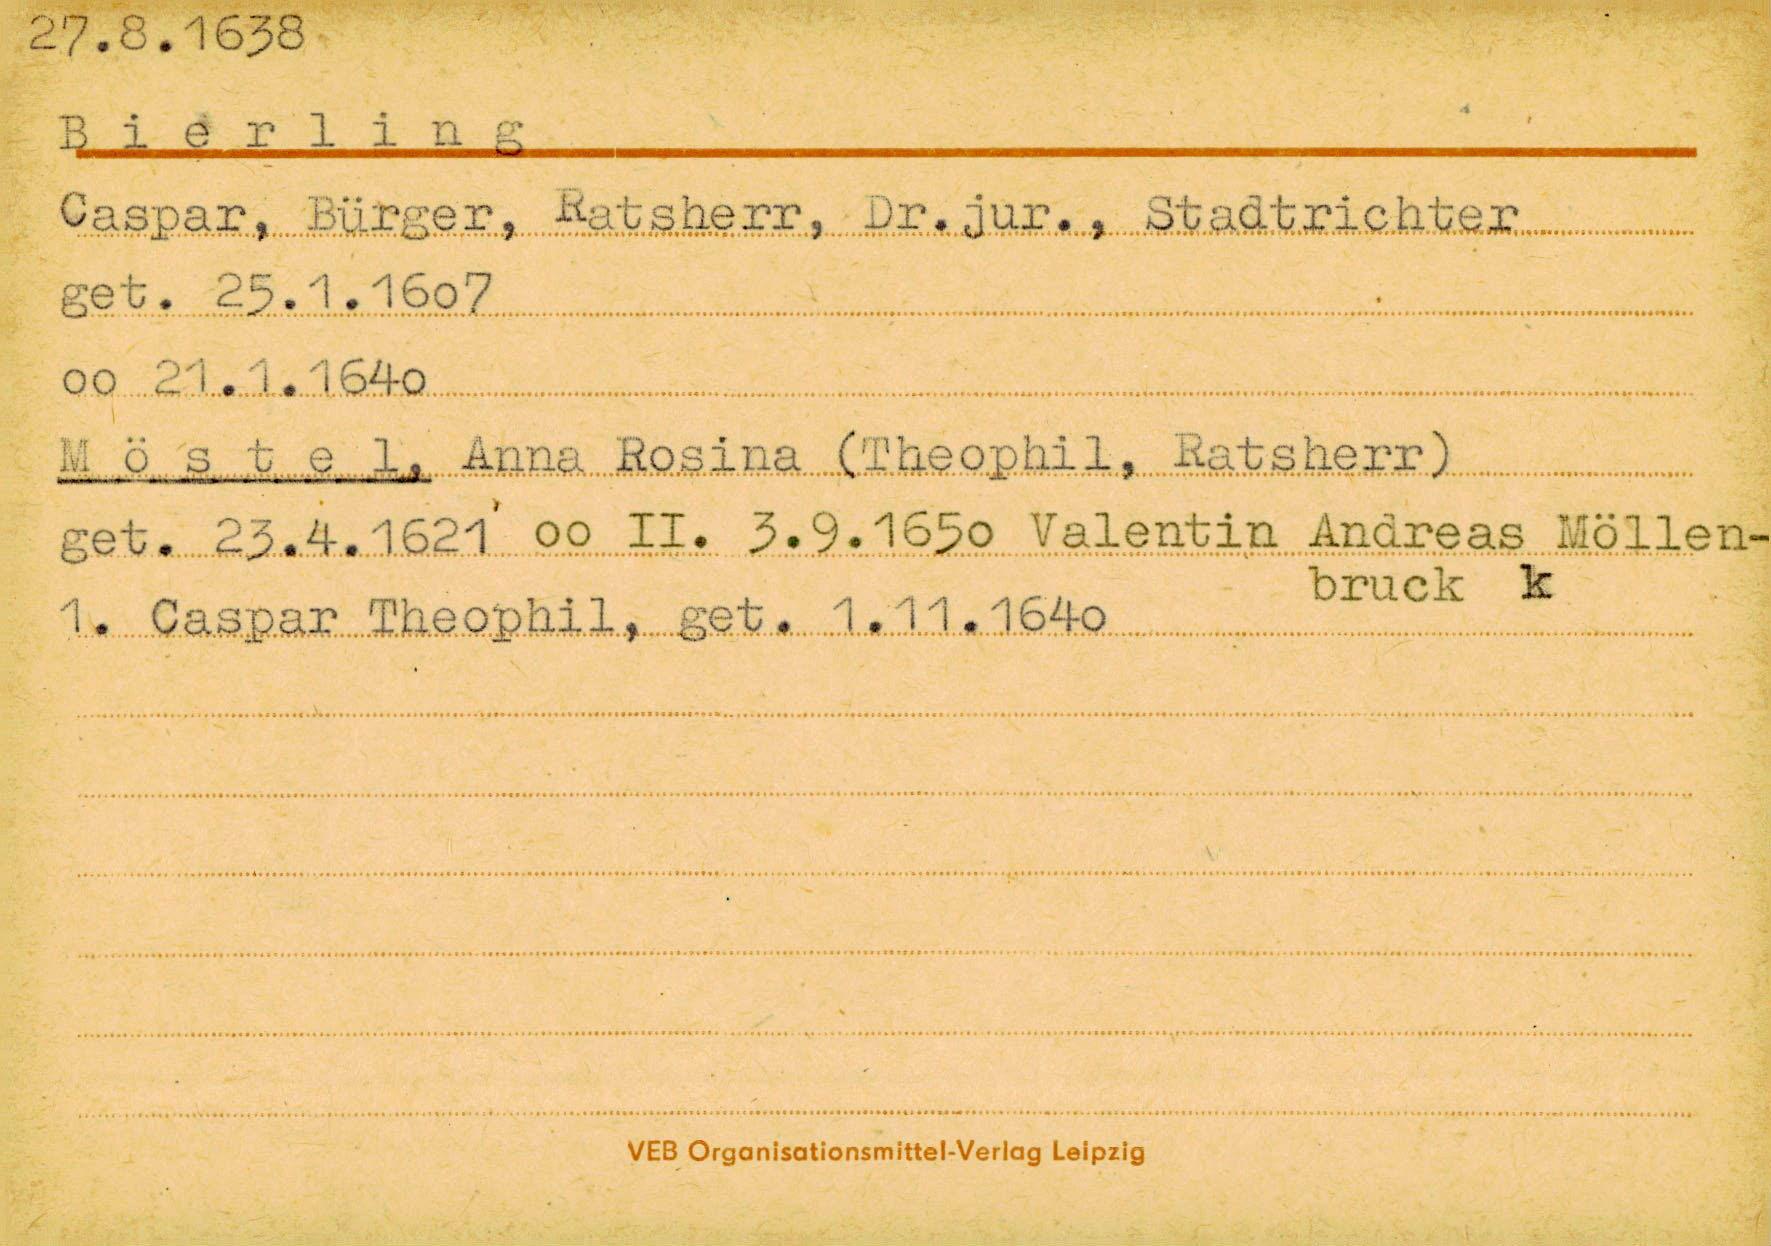 27.8.1638
B i e r l i n g
Caspar, Bürger, Ratsherr, Dr.jur., Stadtrichter
get. 25.1.16o7
oo 21.1.164o
M ö s t e l, Anna Rosina (Theophil, Ratsherr)
get. 23.4.1621 oo II. 3.9.165o Valentin Andreas Möllen-
bruck k
1. Caspar Theophil, get. 1.11.164o
VEB Organisationsmittel-Verlag Leipzig